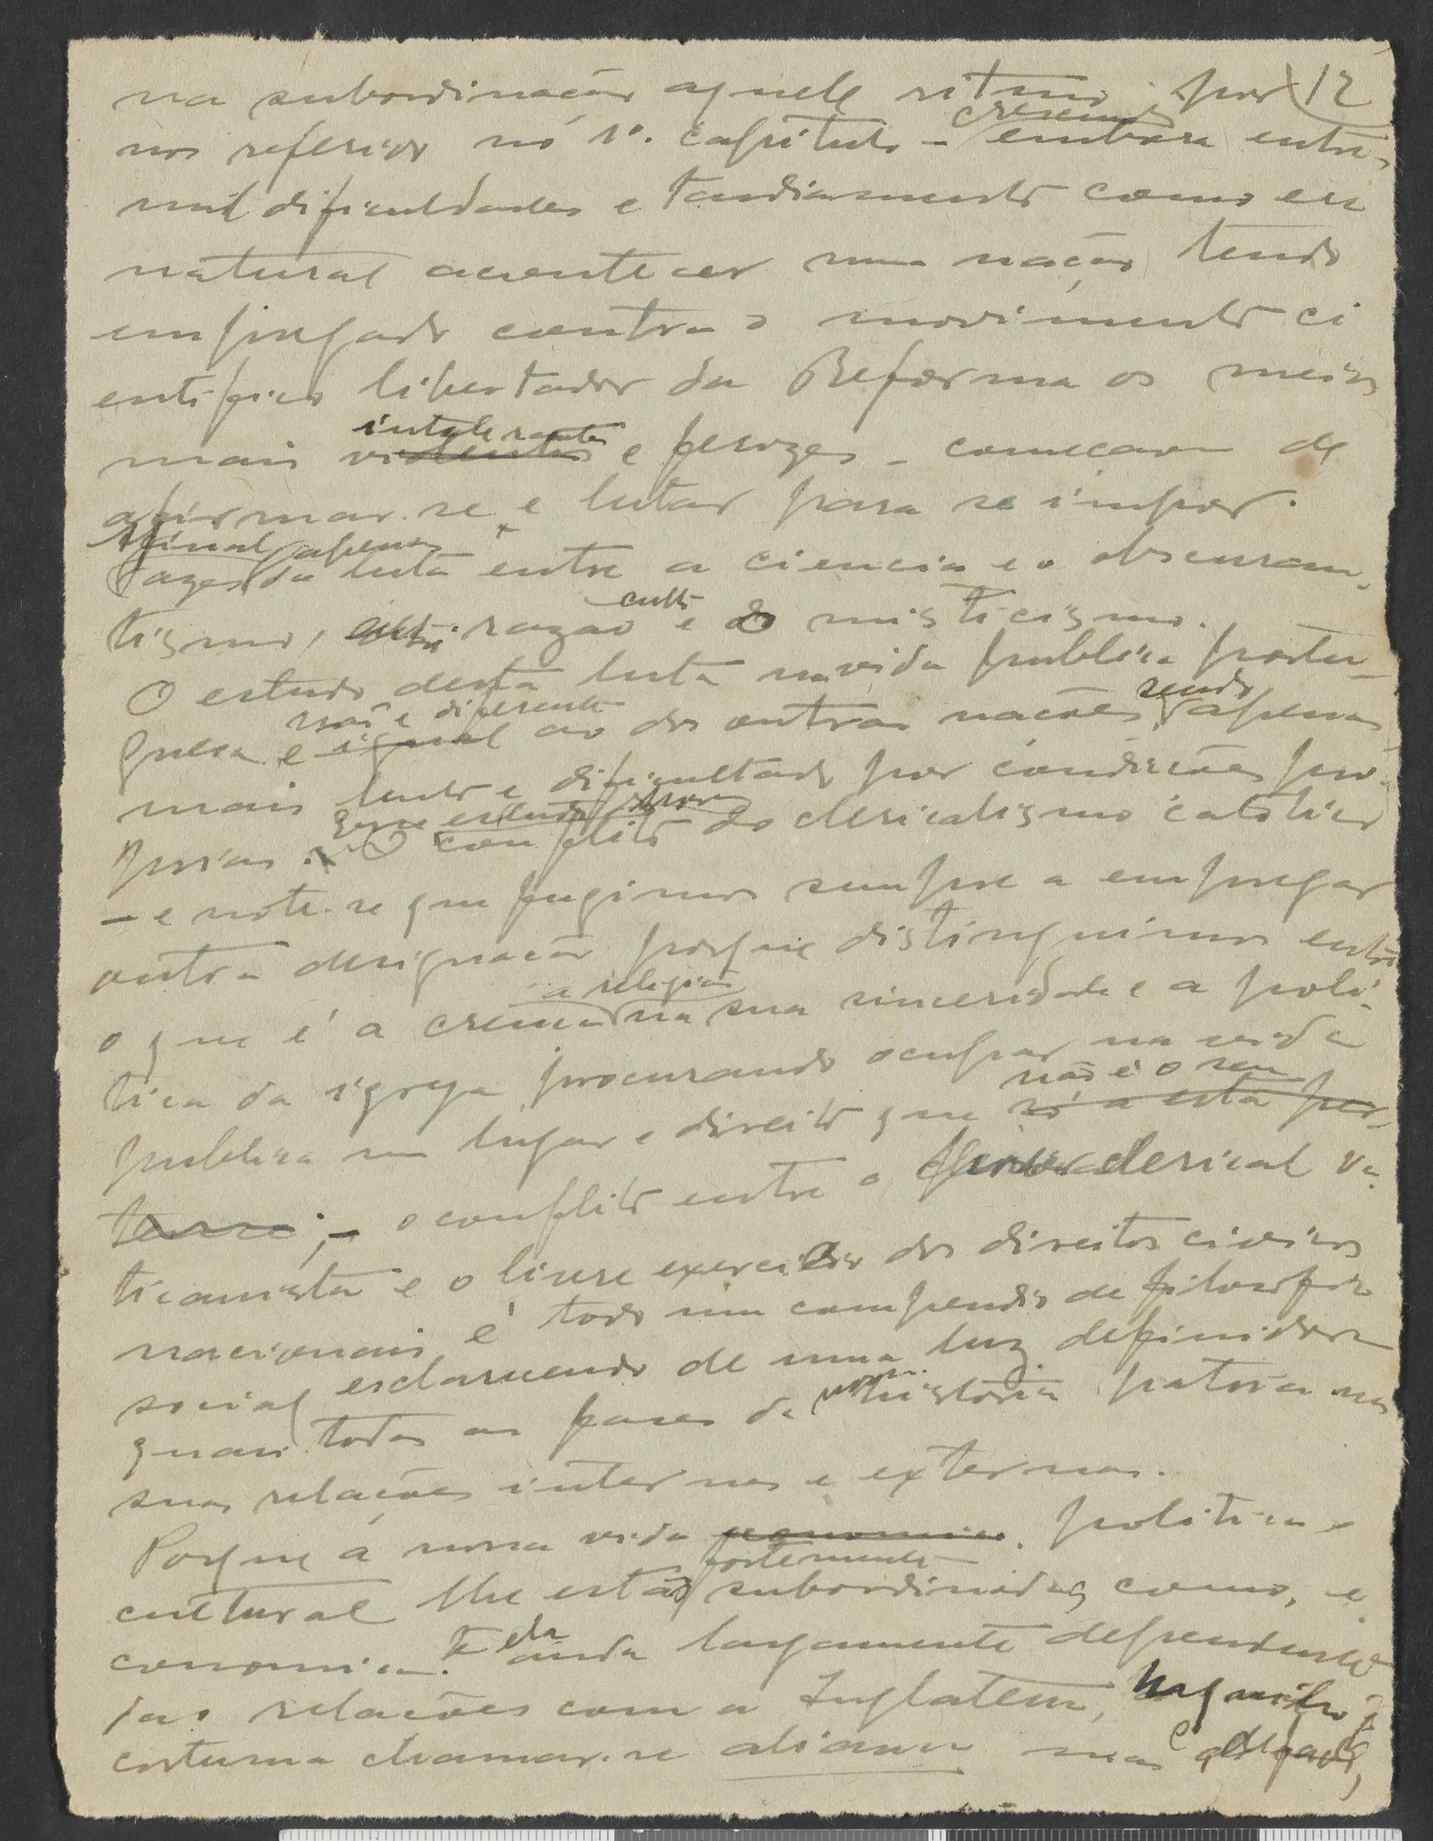 na subordinação aquele ritmo por 12
nos referido no 1º. capitulo - crescemos embora entre
mil dificuldades e tardiamente como era
natural acontecer numa nação tendo
empregado contra o movimento ci
entifico libertador da Reforma os meios
mais violentos intolerantes e ferozes - começaram de
afirmar-se e lutar para se impor.
Afinal apenas fazes da luta entre a ciencia e o obscuran-
tismo, entre razão culta e o misticismo.
O estudo desta luta na vida publica portu-
guesa é igual não é diferente ao das outras nações sendo apenas
mais lento e dificultado por condições pro-
prias. O conflito do clericalismo católico
- e note-se que fugimos sempre a empregar
outra designação porque distinguimos entre
o que é a crença a religião na sua sinceridade e a poli-
tica da igreja procurando ocupar na vida
publica um lugar e direito que não é o seu só a esta per-
tence; - o conflito entre o clerical va-
ticanista e o livre exercicio dos direitos civicos
nacionais é todo um compendio de filosofia
social esclarecendo de uma luz definidora
quasi todas as fases da nossa historia patria nas
suas relações internas e externas.
Porque á nossa vida economica politica e
cultural lhe estão fortemente subordinadas como, e
conomica. ela ainda largamente dependente
das relações com a Inglaterra,
costuma chamar-se aliança mas